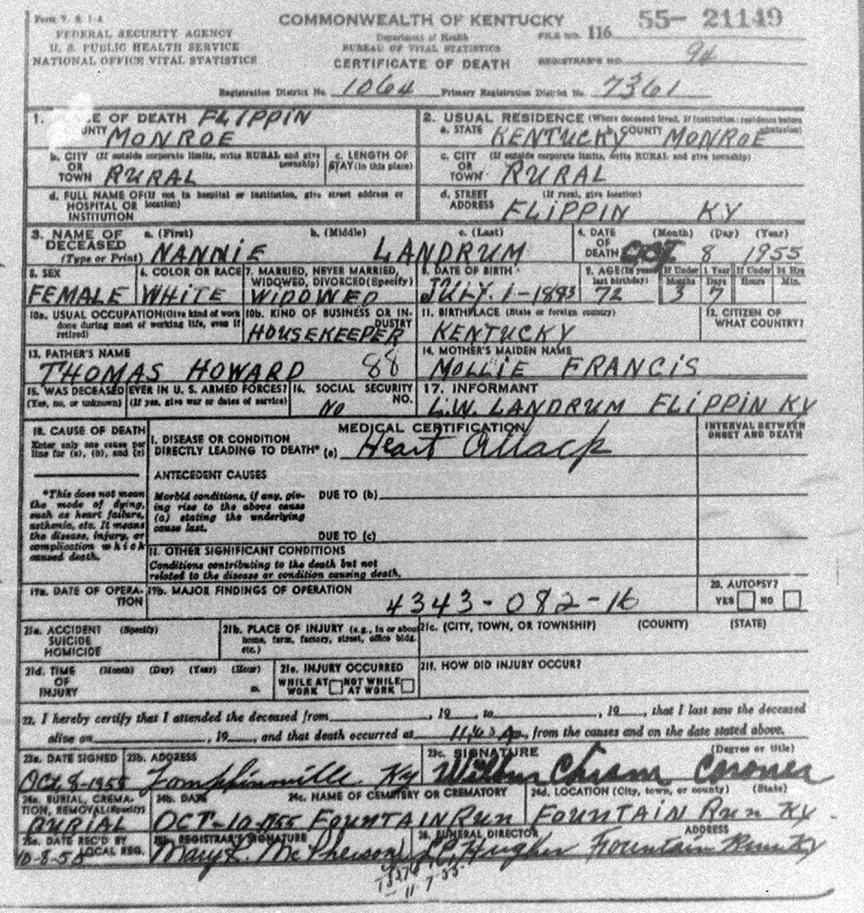 Form V. S. 1-A
FEDERAL SECURITY AGENCY
U. S. PUBLIC HEALTH SERVICE
NATIONAL OFFICE VITAL STATISTICS
COMMONWEALTH OF KENTUCKY
Department of Health
BUREAU OF VITAL STATISTICS
CERTIFICATE OF DEATH
55- 21149
FILE NO. 116
REGISTRAR'S NO. 94
Registration District No. 1064 Primary Registration District No. 7361
1. PLACE OF DEATH FLIPPIN
COUNTY MONROE
2. USUAL RESIDENCE (Where deceased lived, If institution: residence before admission)
a. STATE KENTUCKY b. COUNTY MONROE
b. CITY (If outside corporate limits, write RURAL and give township)
OR TOWN RURAL
c. LENGTH OF STAY (in this place)
c. CITY (If outside corporate limits, write RURAL and give township)
OR TOWN RURAL
d. FULL NAME OF (If not in hospital or institution, give street address or location)
HOSPITAL OR INSTITUTION
d. STREET ADDRESS (If rural, give location)
FLIPPIN KY
3. NAME OF DECEASED (Type or Print)
a. (First) b. (Middle) c. (Last)
NANNIE LANDRUM
4. DATE OF DEATH (Month) (Day) (Year)
OCT 8 1955
5. SEX
FEMALE
6. COLOR OR RACE
WHITE
7. MARRIED, NEVER MARRIED, WIDOWED, DIVORCED (Specify)
WIDOWED
8. DATE OF BIRTH
JULY. 1-1883
9. AGE (In years last birthday)
72
If Under 1 Year
Months 3 Days 7
If Under 24 Hrs
Hours Min.
10a. USUAL OCCUPATION (Give kind of work done during most of working life, even if retired)
10b. KIND OF BUSINESS OR INDUSTRY
HOUSEKEEPER
11. BIRTHPLACE (State or foreign country)
KENTUCKY
12. CITIZEN OF WHAT COUNTRY?
13. FATHER'S NAME
THOMAS HOWARD 88
14. MOTHER'S MAIDEN NAME
MOLLIE FRANCIS
15. WAS DECEASED EVER IN U. S. ARMED FORCES?
(Yes, no, or unknown) (If yes, give war or dates of service)
16. SOCIAL SECURITY NO.
NO
17. INFORMANT
L.W. LANDRUM FLIPPIN KY
18. CAUSE OF DEATH
Enter only one cause per line for (a), (b), and (c)
*This does not mean the mode of dying, such as heart failure, asthenia, etc. It means the disease, injury, or complication which caused death.
MEDICAL CERTIFICATION
INTERVAL BETWEEN ONSET AND DEATH
I. DISEASE OR CONDITION
DIRECTLY LEADING TO DEATH* (a) Heart Attack
ANTECEDENT CAUSES
Morbid conditions, if any, giving rise to the above cause (a) stating the underlying cause last.
DUE TO (b)
DUE TO (c)
II. OTHER SIGNIFICANT CONDITIONS
Conditions contributing to the death but not
related to the disease or condition causing death.
19a. DATE OF OPERATION
19b. MAJOR FINDINGS OF OPERATION
4343-082-16
20. AUTOPSY?
YES NO
21a. ACCIDENT SUICIDE HOMICIDE (Specify)
21b. PLACE OF INJURY (e.g., in or about home, farm, factory, street, office bldg. etc.)
21c. (CITY, TOWN, OR TOWNSHIP) (COUNTY) (STATE)
21d. TIME OF INJURY (Month) (Day) (Year) (Hour) m.
21e. INJURY OCCURRED
WHILE AT WORK NOT WHILE AT WORK
21f. HOW DID INJURY OCCUR?
22. I hereby certify that I attended the deceased from , 19 to , 19 , that I last saw the deceased
alive on , 19 , and that death occurred at m., from the causes and on the date stated above.
23a. DATE SIGNED
Oct 8-1955
23b. ADDRESS
Tompkinsville Ky
23c. SIGNATURE (Degree or title)
Coroner
24a. BURIAL, CREMATION, REMOVAL (Specify)
BURIAL
24b. DATE
OCT-10-1955
24c. NAME OF CEMETERY OR CREMATORY
FOUNTAIN RUN
24d. LOCATION (City, town, or county) (State)
FOUNTAIN RUN KY
25a. DATE REC'D BY LOCAL REG.
10-8-55
25b. REGISTRAR'S SIGNATURE
Mary L. McPherson
26. FUNERAL DIRECTOR ADDRESS
Hughes Fountain Run Ky
11-7-55